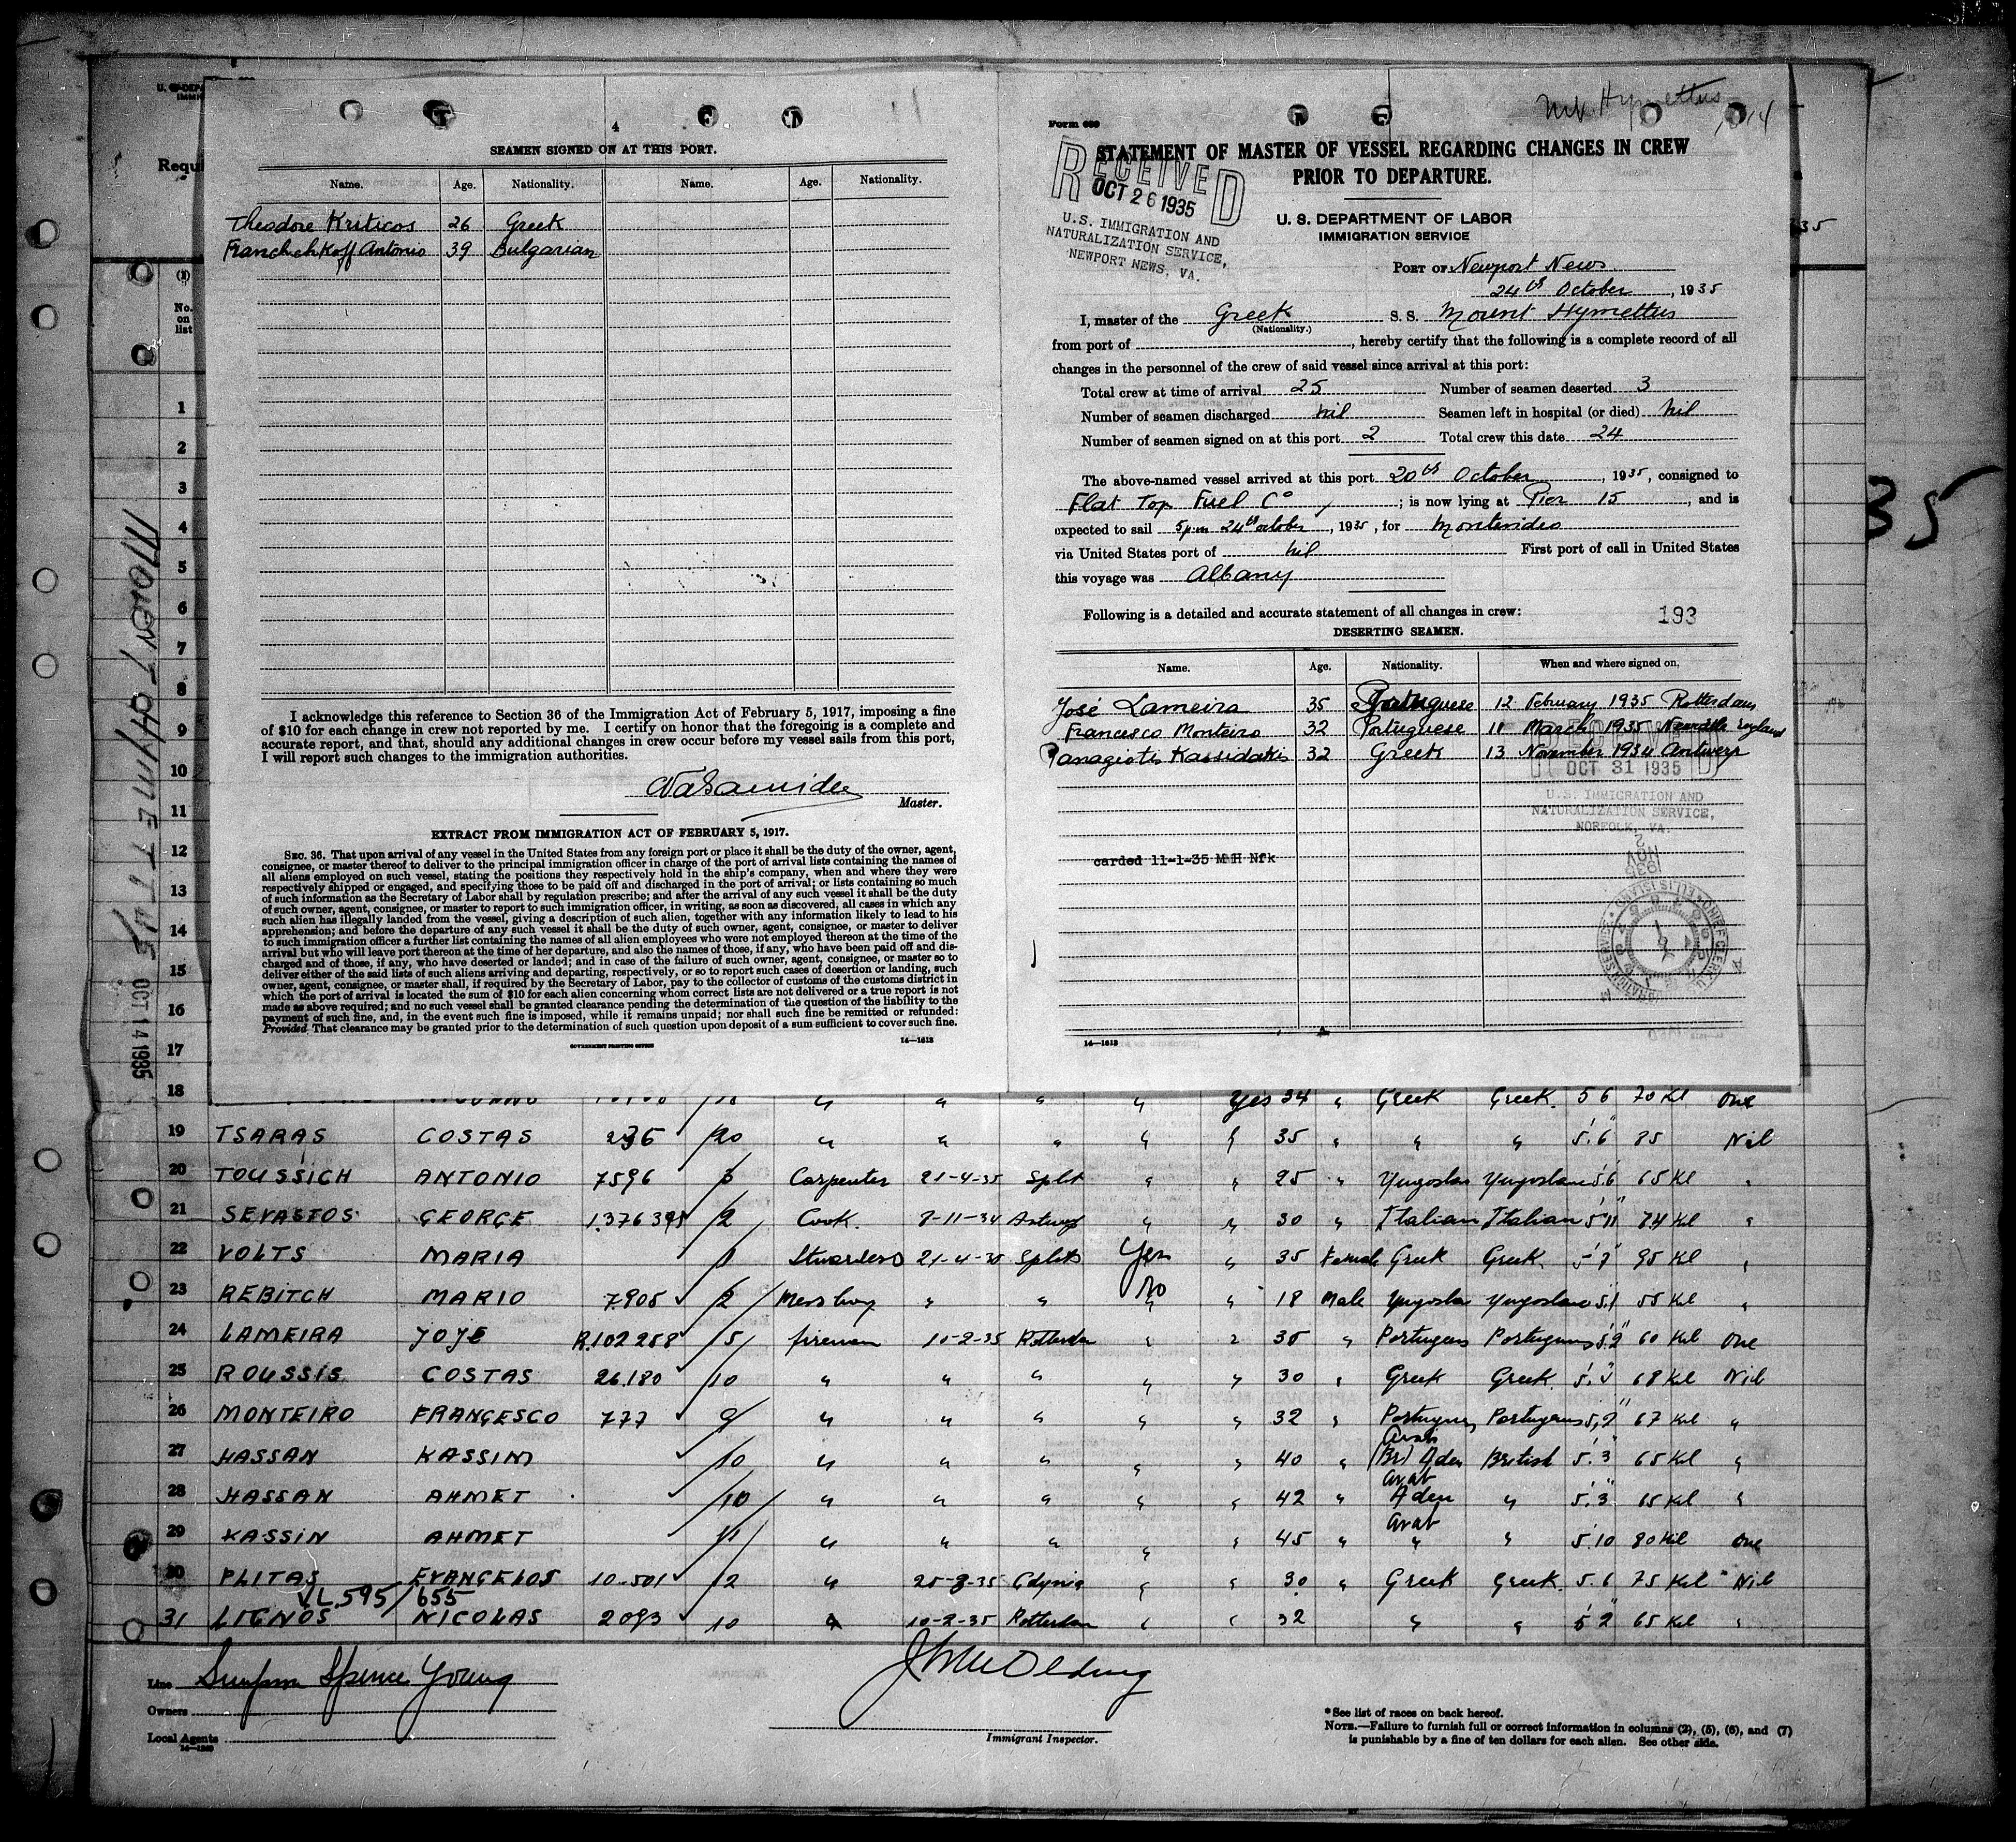 4
SEAMEN SIGNED ON AT THIS PORT.
Name. Age. Nationality. Name. Age. Nationality.
Theodore Kriticos 26 Greek
Franchehkoff Antonio 39 Bulgarian
I acknowledge this reference to Section 36 of the Immigration Act of February 5, 1917, imposing a fine
of $10 for each change in crew not reported by me. I certify on honor that the foregoing is a complete and
accurate report, and that, should any additional changes in crew occur before my vessel sails from this port,
I will report such changes to the immigration authorities.
Master.
EXTRACT FROM IMMIGRATION ACT OF FEBRUARY 5, 1917.
SEC. 36. That upon arrival of any vessel in the United States from any foreign port or place it shall be the duty of the owner, agent,
consignee, or master thereof to deliver to the principal immigration officer in charge of the port of arrival lists containing the names of
all aliens employed on such vessel, stating the positions they respectively hold in the ship's company, when and where they were
respectively shipped or engaged, and specifying those to be paid off and discharged in the port of arrival; or lists containing so much
of such information as the Secretary of Labor shall by regulation prescribe; and after the arrival of any such vessel it shall be the duty
of such owner, agent, consignee, or master to report to such immigration officer, in writing, as soon as discovered, all cases in which any
such alien has illegally landed from the vessel, giving a description of such alien, together with any information likely to lead to his
apprehension; and before the departure of any such vessel it shall be the duty of such owner, agent, consignee, or master to deliver
to such immigration officer a further list containing the names of all alien employees who were not employed thereon at the time of the
arrival but who will leave port thereon at the time of her departure, and also the names of those, if any, who have been paid off and dis-
charged and of those, if any, who have deserted or landed; and in case of the failure of such owner, agent, consignee, or master so to
deliver either of the said lists of such aliens arriving and departing, respectively, or so to report such cases of desertion or landing, such
owner, agent, consignee, or master shall, if required by the Secretary of Labor, pay to the collector of customs of the customs district in
which the port of arrival is located the sum of $10 for each alien concerning whom correct lists are not delivered or a true report is not
made as above required; and no such vessel shall be granted clearance pending the determination of the question of the liability to the
payment of such fine, and, in the event such fine is imposed, while it remains unpaid; nor shall such fine be remitted or refunded:
Provided, That clearance may be granted prior to the determination of such question upon deposit of a sum sufficient to cover such fine.
GOVERNMENT PRINTING OFFICE 14—1613
Mt. Hymettus
Form 689
STATEMENT OF MASTER OF VESSEL REGARDING CHANGES IN CREW
PRIOR TO DEPARTURE.
RECEIVED
OCT 26 1935
U.S. IMMIGRATION AND
NATURALIZATION SERVICE,
NEWPORT NEWS, VA.
U. S. DEPARTMENT OF LABOR
IMMIGRATION SERVICE
PORT OF Newport News
24th October, 1935
I, master of the Greek S. S. Mount Hymettus
(Nationality.)
from port of , hereby certify that the following is a complete record of all
changes in the personnel of the crew of said vessel since arrival at this port:
Total crew at time of arrival 25 Number of seamen deserted 3
Number of seamen discharged nil Seamen left in hospital (or died) nil
Number of seamen signed on at this port 2 Total crew this date 24
The above-named vessel arrived at this port 20th October, 1935, consigned to
Flat Top Fuel Co ; is now lying at Pier 15, and is
expected to sail 5pm 24th october, 1935, for Montevideo
via United States port of nil First port of call in United States
this voyage was Albany
Following is a detailed and accurate statement of all changes in crew: 193
DESERTING SEAMEN.
Name. Age. Nationality. When and where signed on.
José Lameira 35 Portuguese 12 February 1935 Rotterdam
Francesco Monteiro 32 Portuguese 11 March 1935
Panagiotis Kassidakis 32 Greek 13 November 1934 Antwerp
OCT 31 1935
U.S. IMMIGRATION AND
NATURALIZATION SERVICE,
NORFOLK, VA.
carded 11-1-35 MH Nfk
14—1613
Requi
(1)
No.
on
list
1
2
3
4
5
6
7
8
9
10
11
12
13
14
15
16
17
MOUNT HYMETTUS OCT 14 1935
35
18 Yes 34 " Greek Greek. 5 6 70 Kl One
19 TSARAS COSTAS 236 20 " " " " " 35 " " " 5.6 85 Nil
20 TOUSSICH ANTONIO 7596 3 Carpenter 21-4-35 Split " " 25 " Yugoslav Yugoslav 5.6 65 Kl "
21 SEVASTOS GEORGE 1.376395 2 Cook. 8-11-34 Antwerp " " 30 " Italian Italian 5'11" 74 Kil "
22 VOLTS MARIA 1 Stwardess 21-4-35 Split Yes " 35 Female Greek Greek. 5-7" 95 Kil "
23 REBITCH MARIO 7905 2 Mess boy " " No " 18 Male Yugoslav Yugoslav 5.1 55 Kil "
24 LAMEIRA JOJE R.102258 5 fireman 10-2-35 Rotterdam " " 35 " Portugues Portugues 5.2" 60 Kil One
25 ROUSSIS COSTAS 26.180 10 " " " " " 30 " Greek Greek. 68 Kil Nil
26 MONTEIRO FRANCESCO 777 9 " " " " " 32 " Portugues Portugues 67 Kil "
27 HASSAN KASSIM 10 " " " " " 40 " Arab (Br) Aden British 5.3" 65 Kil "
28 HASSAN AHMET 10 " " " " " 42 " Arab Aden " 5.3" 65 Kil "
29 KASSIN AHMET 11 " " " " " 45 " Arab " " 5.10 80 Kil One
30 PLITAS EVANGELOS 10.501 2 " 25-8-35 Gdynia " " 30 " Greek Greek. 5.6 75 Kil Nil
VL.595/655
31 LIGNOS NICOLAS 2093 10 " 10-2-35 Rotterdam " " 32 " " 5 2" 65 Kil "
Line Simpson Spence Young
Owners
Local Agents
Immigrant Inspector.
*See list of races on back hereof.
NOTE.—Failure to furnish full or correct information in columns (2), (5), (6), and (7)
is punishable by a fine of ten dollars for each alien. See other side.